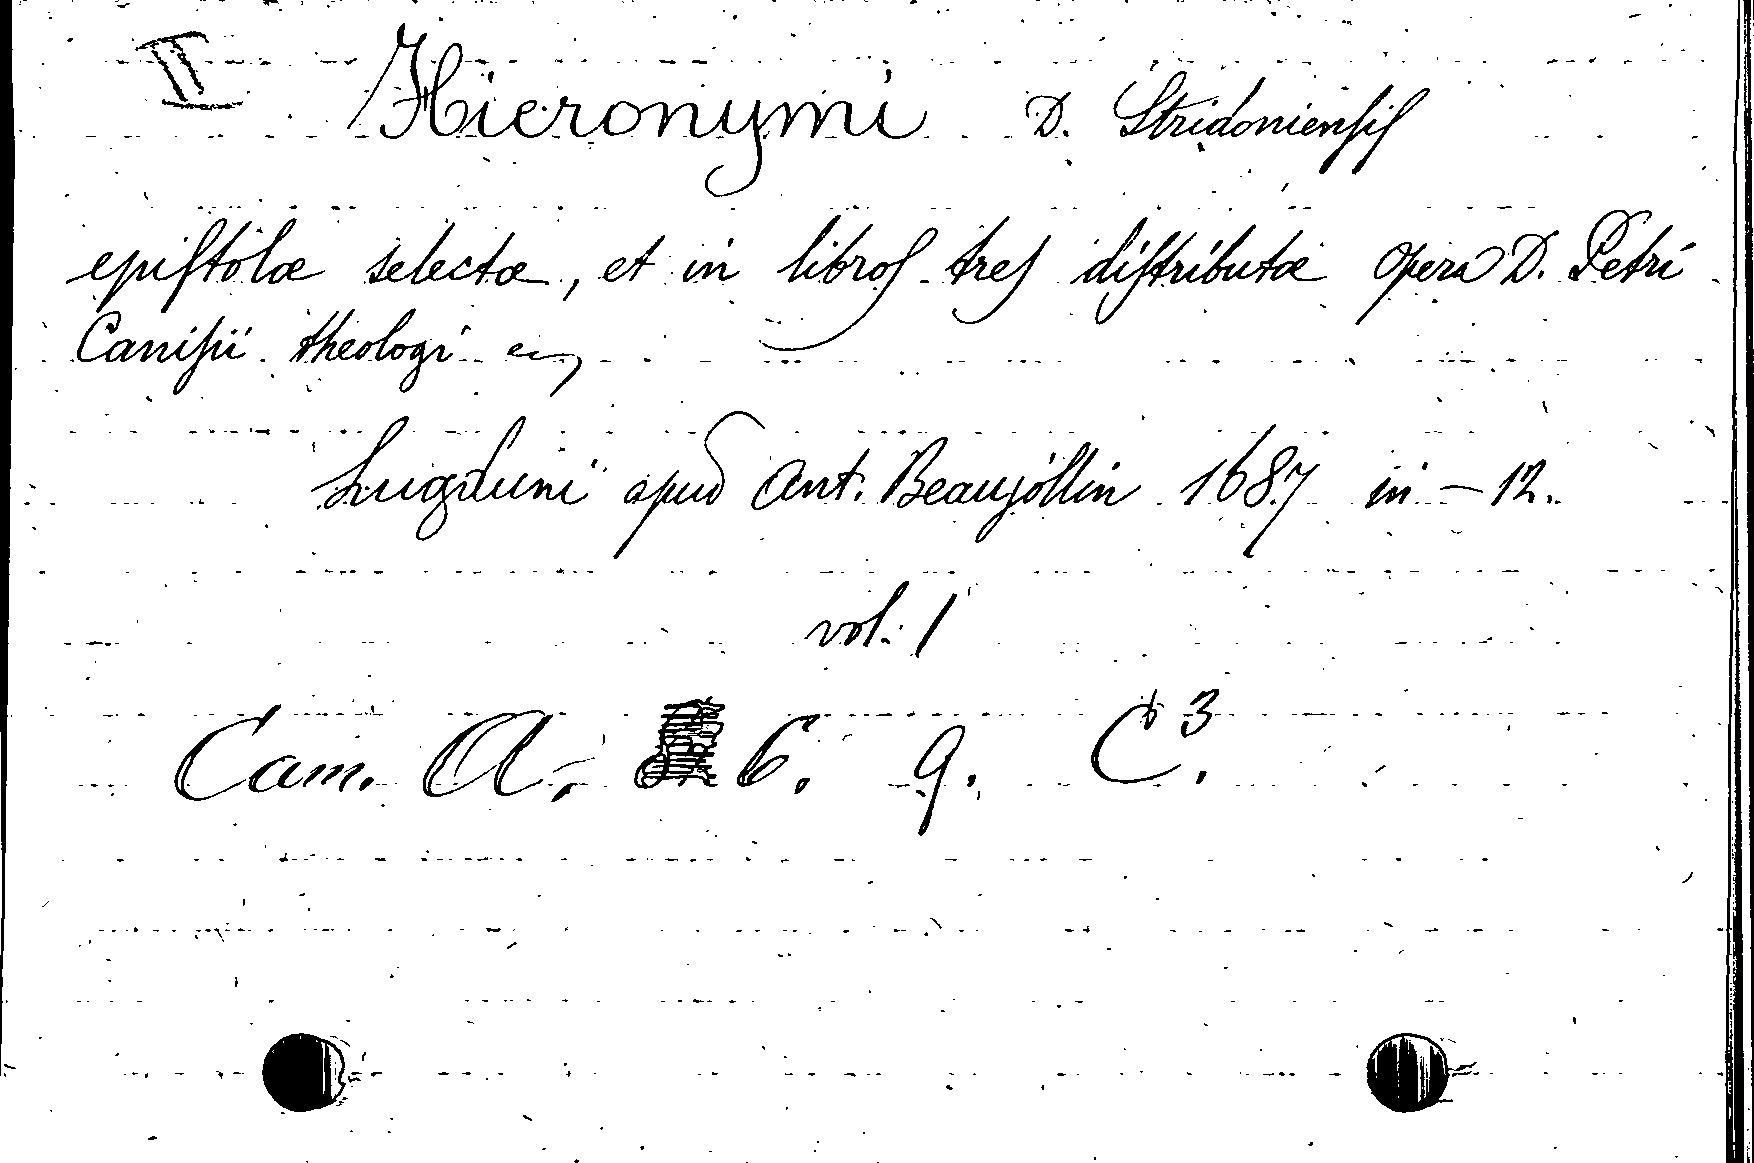 II Hieronymi D. Stridonienſiſ
epiſtolæ selectæ, et in libroſ treſ diſtributæ opera D. Petri
Caniſii theologi
Lugduni apud Ant. Beaujollin 1687 in-12.
vol. 1
Cam. A. 6. 9. C³.